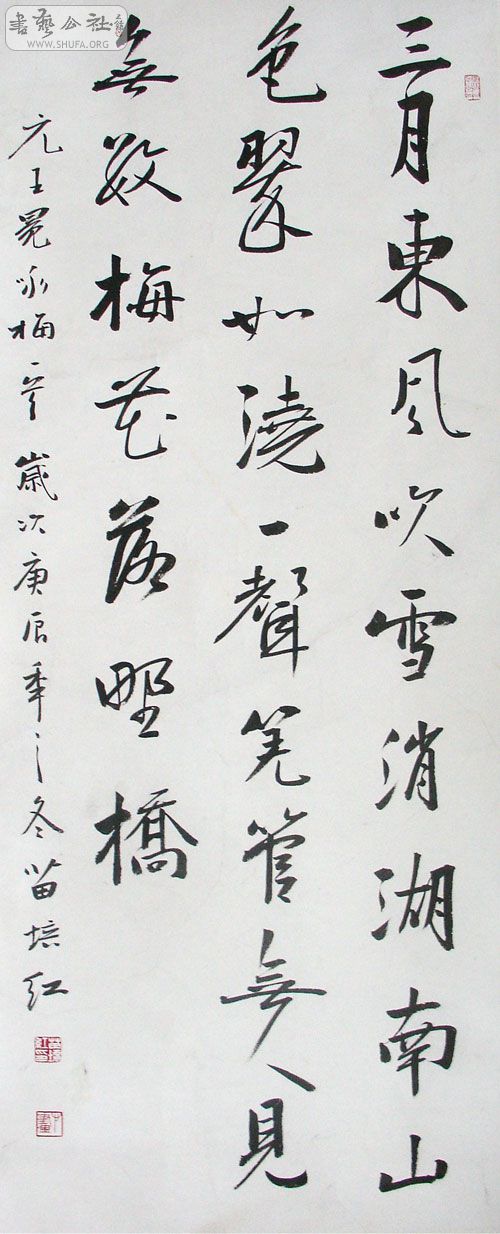 書藝公社
WWW.SHUFA.ORG
三月東風吹雪消湖南山
色翠如澆一聲羌管無人見
無数梅花落野橋
元王冕咏梅一 歲次庚辰年之冬苗培红